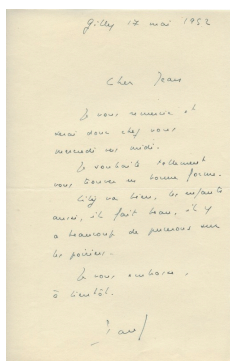 Gilly 17 mai 1952
Cher Jean
Je vous remercie et
serai donc chez vous
mercredi vers midi.
Je souhaite tellement
vous trouver en bonne forme.
va bien, les enfants
aussi, il fait beau, il y
a beaucoup de pucerons sur
les poiriers.
Je vous embrasse,
à bientôt.